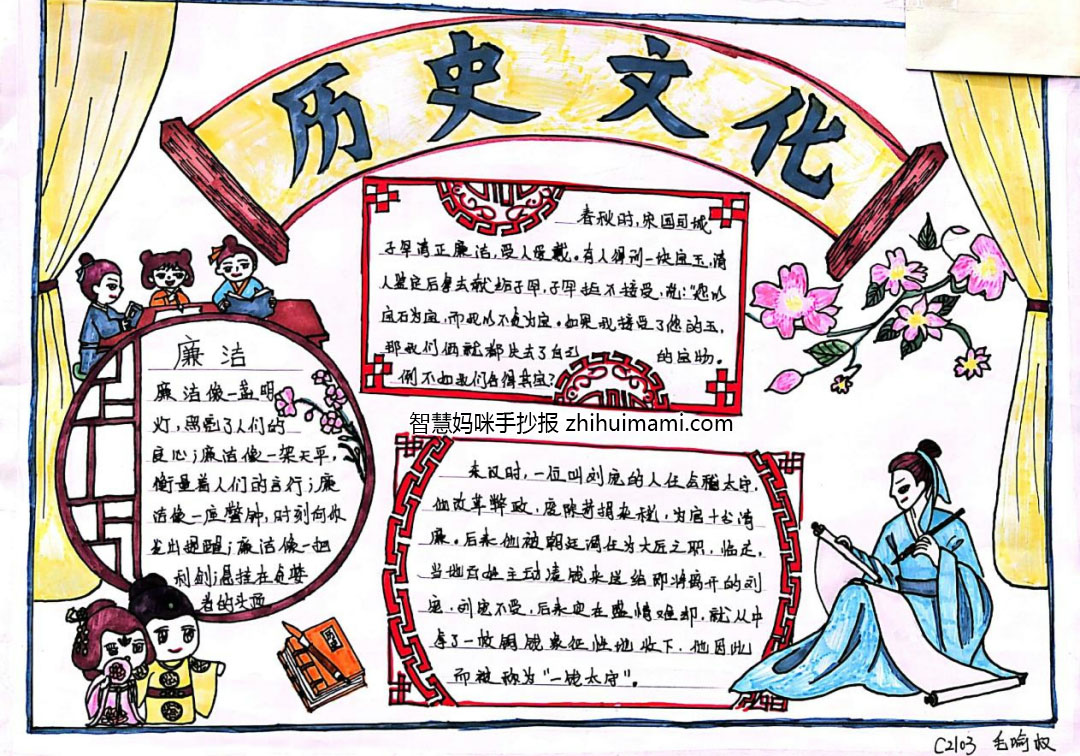 历史文化
春秋时,宋国司城
子罕清正廉洁,受人爱戴。有人得到一块宝玉,请
人鉴定后拿去献给子罕,子罕拒不接受,说:"您以
宝石为宝,而我以不贪为宝。如果我接受了您的玉,
那我们俩就都失去了自己 的宝物。
倒不如我们各得其宝?
廉洁
廉洁像一盏明
灯,照亮了人们的
良心;廉洁像一架天平,
衡量着人们的言行;廉
洁像一座警钟,时刻向你
发出提醒;廉洁像一把
利剑,悬挂在贪婪
者的头顶
智慧妈咪手抄报 zhihuimami.com
东汉时,一位叫刘宠的人任会稽太守,
他改革弊政,废除苛捐杂税,为官十分清
廉。后来他被朝廷调任为大匠之职,临走,
当地百姓主动凑钱来送给即将离开的刘
宠,刘宠不受,后来实在盛情难却,就从中
拿了一枚铜钱象征性地收下,他因此
而被称为"一钱太守"。
C2103 毛